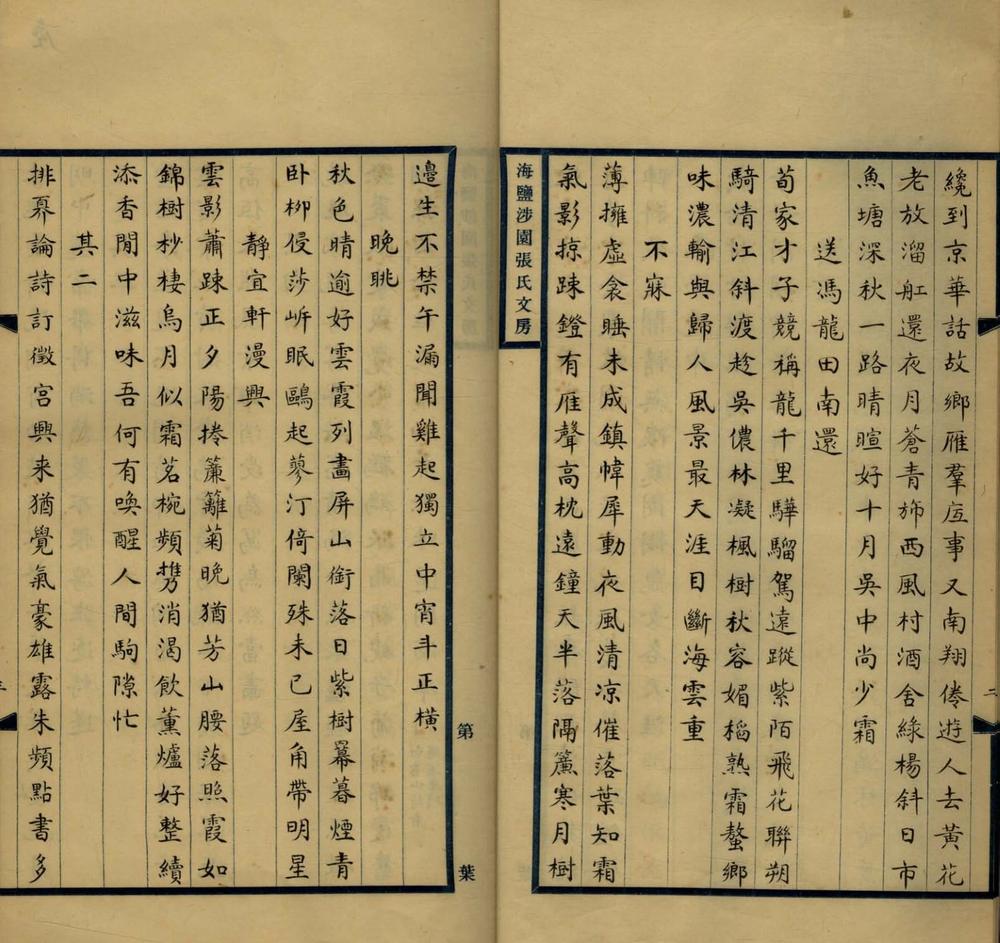 纔到京華話故鄉雁羣底事又南翔倦遊人去黃花
老放溜舡還夜月蒼青斾西風村酒舍綠楊斜日市
魚塘深秋一路晴暄好十月吳中尚少霜
送馮龍田南還
荀家才子競稱龍千里驊騮駕遠蹤紫陌飛花聯朔
騎清江斜渡趁吳儂林凝楓樹秋容媚稻熟霜螯鄉
味濃輸與歸人風景最天涯目斷海雲重
不寐
薄擁虛衾睡未成鎮幃犀動夜風清凉催落葉知霜
氣影掠踈鐙有雁聲高枕遠鐘天半落隔簾寒月樹
海鹽涉園張氏文房
第 葉
邊生不禁午漏聞雞起獨立中宵斗正橫
晚眺
秋色晴逾好雲霞列畫屏山銜落日紫樹冪暮煙青
卧柳侵莎岸眠鷗起蓼汀倚闌殊未已屋角帶明星
靜宜軒漫興
雲影蕭踈正夕陽捲簾籬菊晚猶芳山腰落照霞如
錦樹杪棲烏月似霜茗椀頻攜消渴飲薰爐好整續
添香閒中滋味吾何有喚醒人間駒隙忙
其二
排纂論詩訂徵宮興来猶覺氣豪雄露朱頻點書多
二